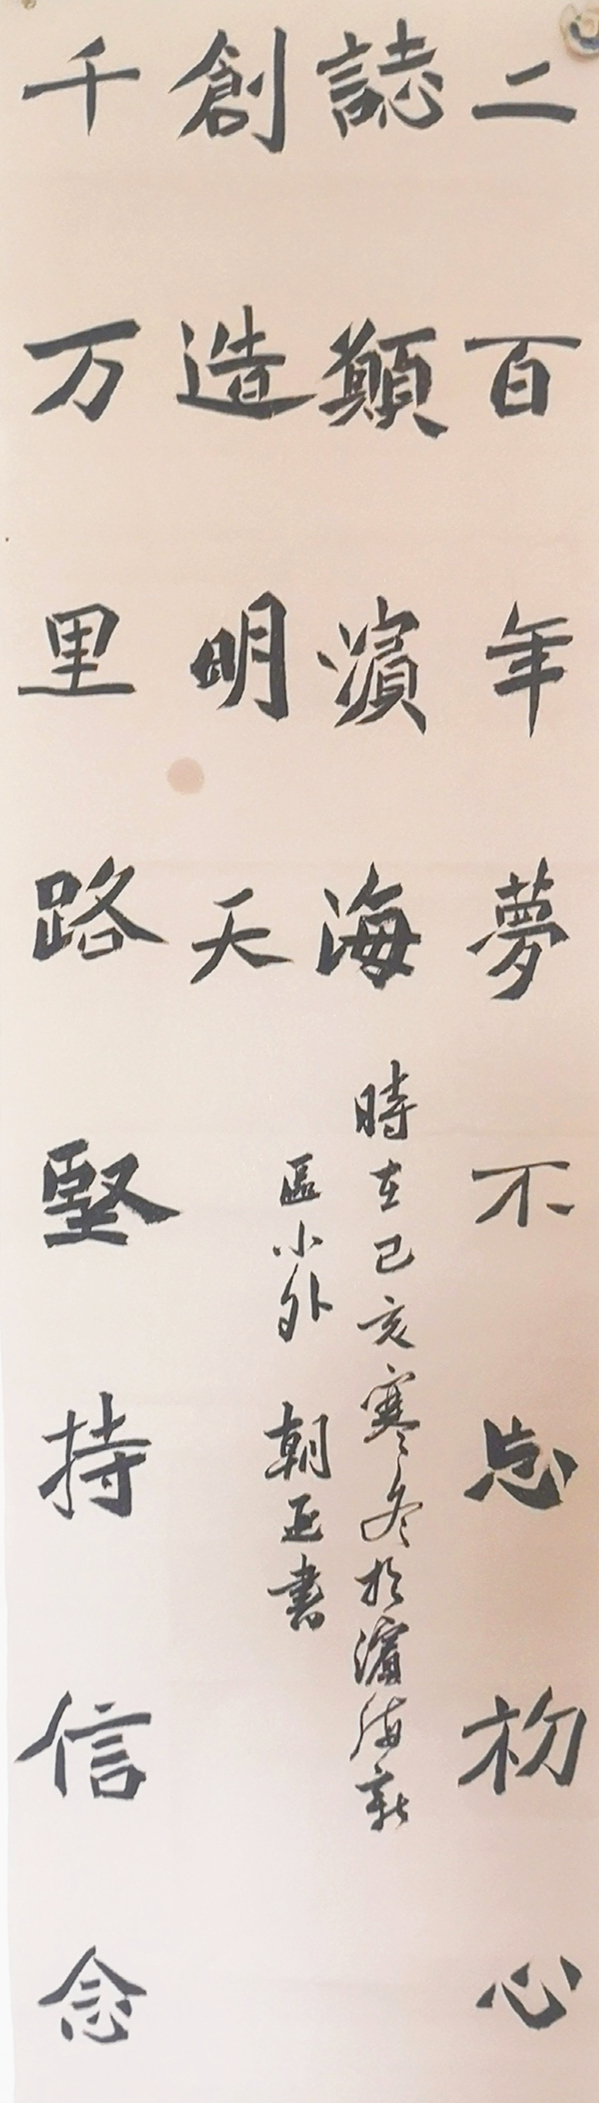 二百年夢不忘初心
誌願濱海
時在己亥寒冬於濱海新
區小外 朝正書
創造明天
千万里路堅持信念